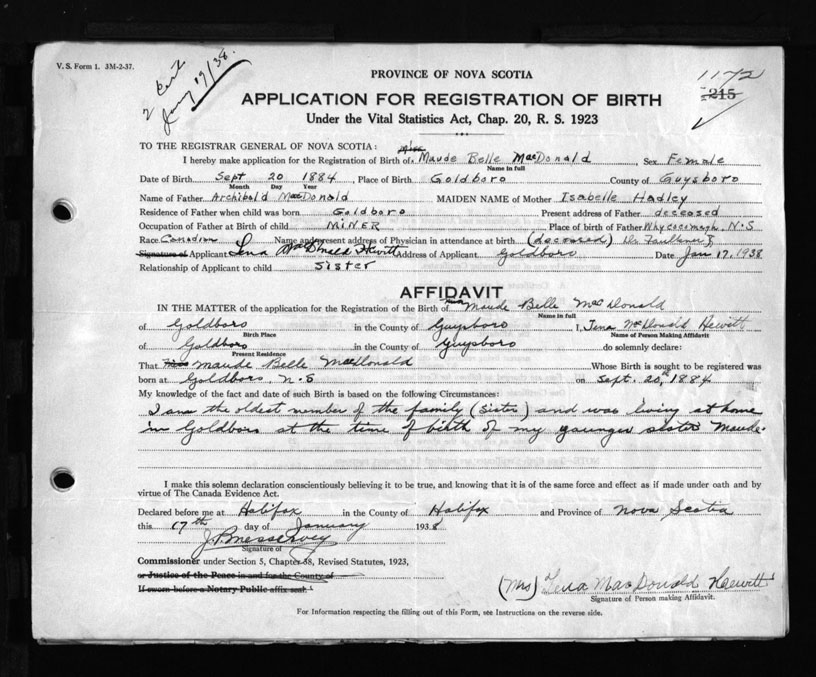 V. S. Form 1. 3M-2-37.
2 Cert
Jany 19/38.
PROVINCE OF NOVA SCOTIA
1172
215
APPLICATION FOR REGISTRATION OF BIRTH
Under the Vital Statistics Act, Chap. 20, R. S. 1923
TO THE REGISTRAR GENERAL OF NOVA SCOTIA:
I hereby make application for the Registration of Birth of Maude Belle MacDonald Sex Female
Name in full
Date of Birth Sept 20 1884, Place of Birth Goldboro County of Guysboro
Month Day Year
Name of Father Archibald MacDonald MAIDEN NAME of Mother Isabelle Hadley
Residence of Father when child was born Goldboro Present address of Father deceased
Occupation of Father at Birth of child MINER Place of birth of Father Whycocomagh, N.S
Race Canadian Name and present address of Physician in attendance at birth (deceased) Dr. Faulkner
Signature of Applicant Tena MacDonald Hewitt Address of Applicant Goldboro Date Jan 17, 1938
Relationship of Applicant to child Sister
AFFIDAVIT
IN THE MATTER of the application for the Registration of the Birth of Maude Belle MacDonald
Name in full
of Goldboro in the County of Guysboro I, Tena McDonald Hewitt
Birth Place Name of Person Making Affidavit
of Goldboro in the County of Guysboro do solemnly declare:
Present Residence
That Miss Maude Belle MacDonald Whose Birth is sought to be registered was
born at Goldboro, N.S on Sept. 20, 1884
My knowledge of the fact and date of such Birth is based on the following Circumstances:
I am the oldest member of the family (sister) and was living at home
in Goldboro at the time of birth of my younger sister Maude.
I make this solemn declaration conscientiously believing it to be true, and knowing that it is of the same force and effect as if made under oath and by
virtue of The Canada Evidence Act.
Declared before me at Halifax in the County of Halifax and Province of Nova Scotia
this 17th day of January 1938
Signature of
Commissioner under Section 5, Chapter 38, Revised Statutes, 1923,
or Justice of the Peace in and for the County of
If sworn before a Notary Public affix seal
(Mrs) Tena MacDonald Hewitt
Signature of Person making Affidavit.
For Information respecting the filling out of this Form, see Instructions on the reverse side.